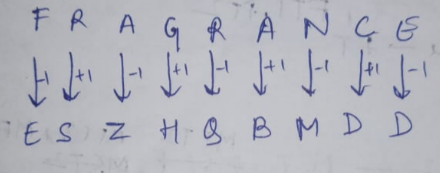 F R A G R A N C E
-1 +1 -1 +1 -1 +1 -1 +1 -1
E S Z H Q B M D D